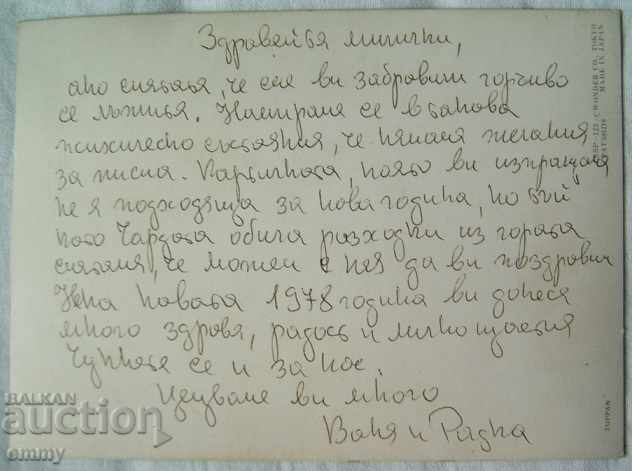 Здравейте милички,
ако смятате, че сме ви забравили горчиво
се лъжите. Намираме се в такова
психическо състояние, че нямаме желания
за писма. Картичката, която ви изпращаме
не е подходяща за нова година, но тъй
като Чардата обича разходки из гората
смятаме, че можем с нея да ви поздравим
Нека новата 1978 година ви донесе
много здраве, радост и лични щастия
Чукнете се и за нас.
Целуваме ви много
Ваня и Радка
SP-123 / C WONDER CO., TOKYO
MADE IN JAPAN
TOPPAN
BALKAN
auction
ommy